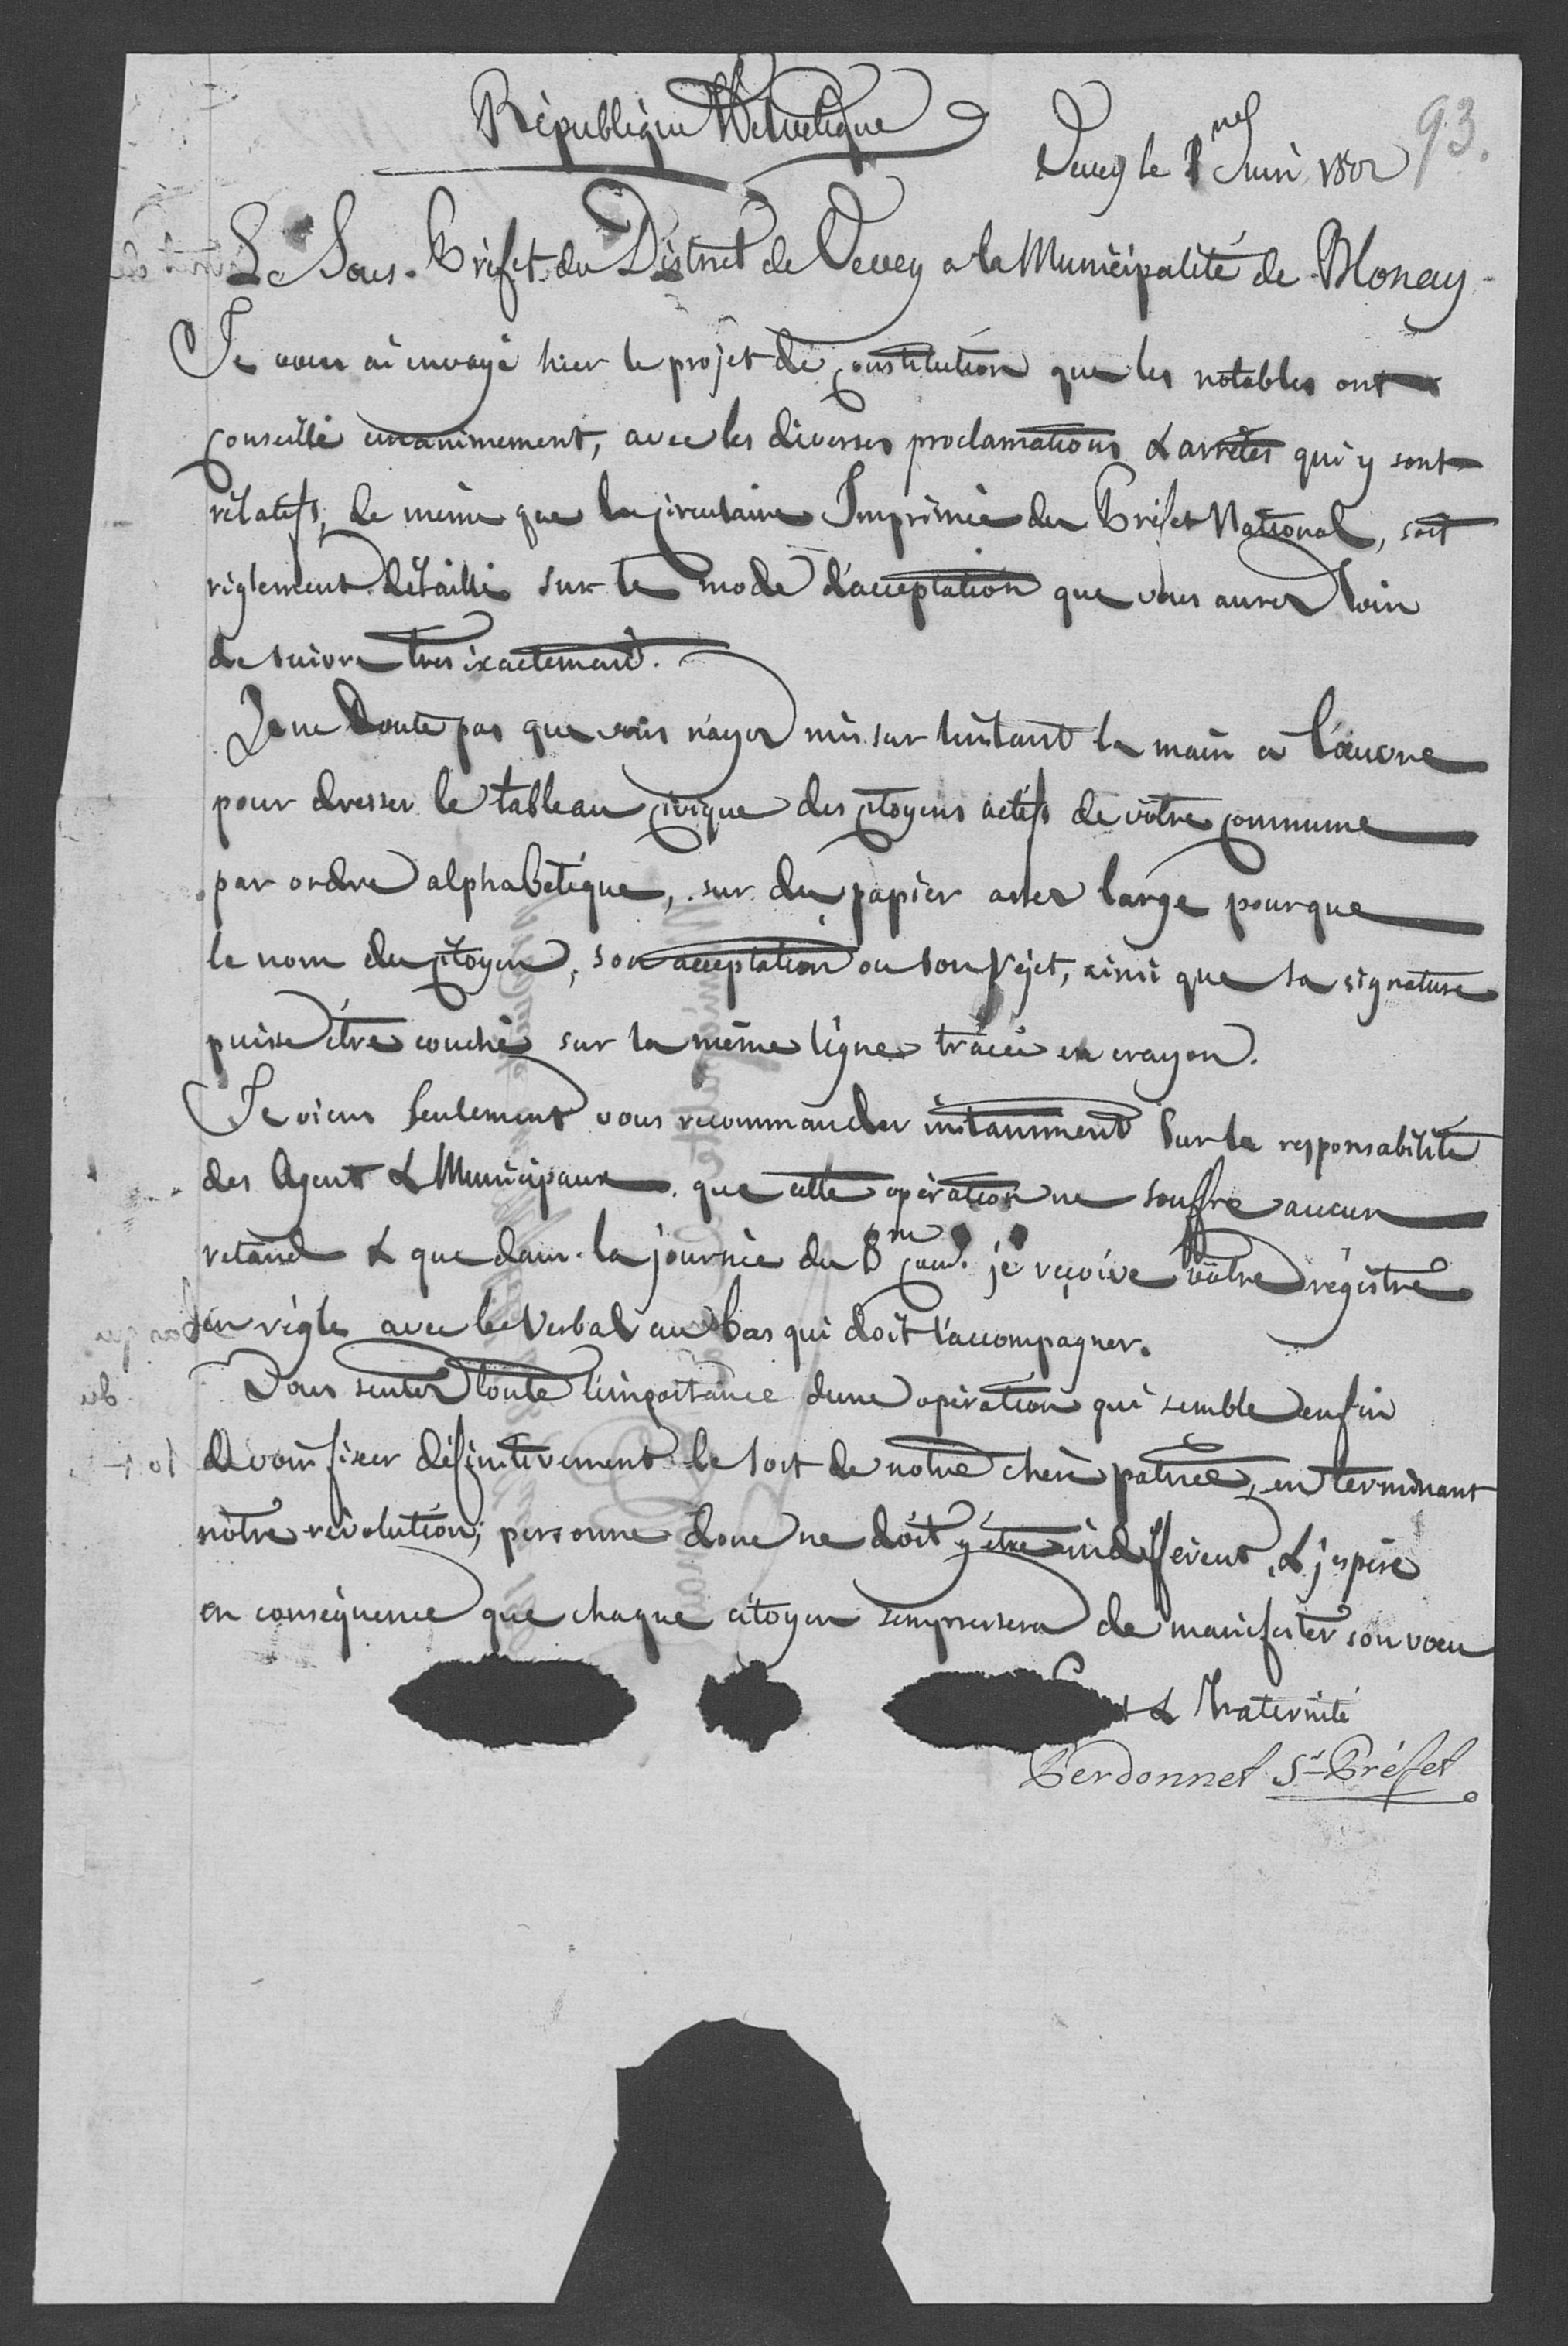 République Helvetique
93.
Vevey le 1 Juin 1802
Le Sous-Préfet du District de Vevey a la Municipalité de Blonay
Je vous ai envoyé hier le projet de Constitution que les notables ont
Conseillé unanimement, avec les diverses proclamations & arrêtés qui y sont
rélatifs, de même que la circulaire Imprimée du Préfet National, soit
réglement détaillé sur le mode d'acceptation que vous aurez soin
de suivre tres exactement.
Je ne doute pas que vous n'ayez mis sur linstant la main a l'œuvre
pour dresser le tableau Civique des Citoyens actifs de vôtre Commune
par ordre alphabetique, sur du papier assez large pourque
le nom du Citoyen, son acceptation ou son rejet, ainsi que sa signature
puisse être couché sur la même ligne tracée en crayon.
Je viens seulement vous recommander instamment sur la responsabilité
des Agents & Municipaux que cette opération ne souffre aucun
retard & que dans la journée du 8 Cour. je reçoive vôtre régistre
en régle avec le Verbal au bas qui doit l'accompagner.
Vous sentez toute l'importance dune opération qui semble enfin
devoir fixer définitivement le sort de notre chere patrie, en terminant
nôtre révolution; personne donc ne doit y être indifférent, & j'espère
en conséquence que chaque citoyen sempressera de manifester son vœu
& Fraternité
Perdonnet Sr-Préfet